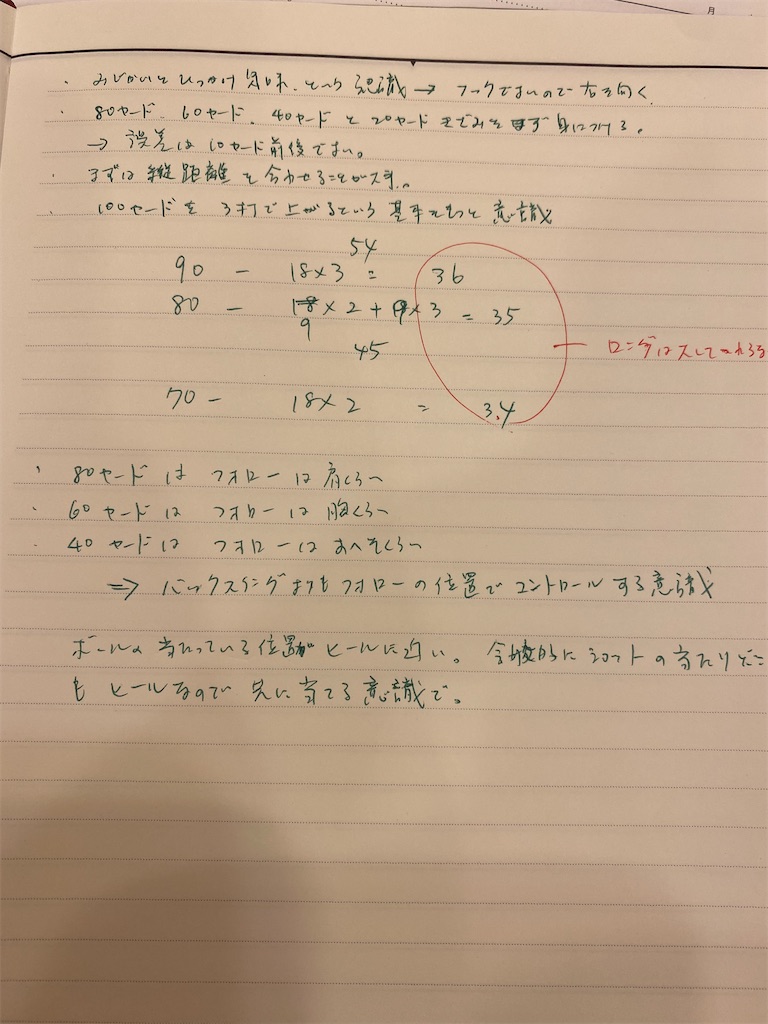 月
・みじかいとひっかけ気味、という認識 → フックではないので右を向く
・80ヤード、60ヤード、40ヤードと20ヤードきざみをまず身につける。
→ 誤差は10ヤード前後でよい。
・まずは縦距離を合わせることが大事。
・100ヤードを3打で上がるという基準をもっと意識
54
90 － 18×3 = 36
80 － 18×2 + 9×3 = 35
9
45
ロングは入して
70 － 18×2 = 34
・80ヤードは フォローは肩くらい
・60ヤードは フォローは胸くらい
・40ヤードは フォローはおへそくらい
⇒ バックスイングよりもフォローの位置でコントロールする意識
ボールの当たっている位置がヒールに近い。全般的にショットの当たりどこ
もヒールなので先に当てる意識で。